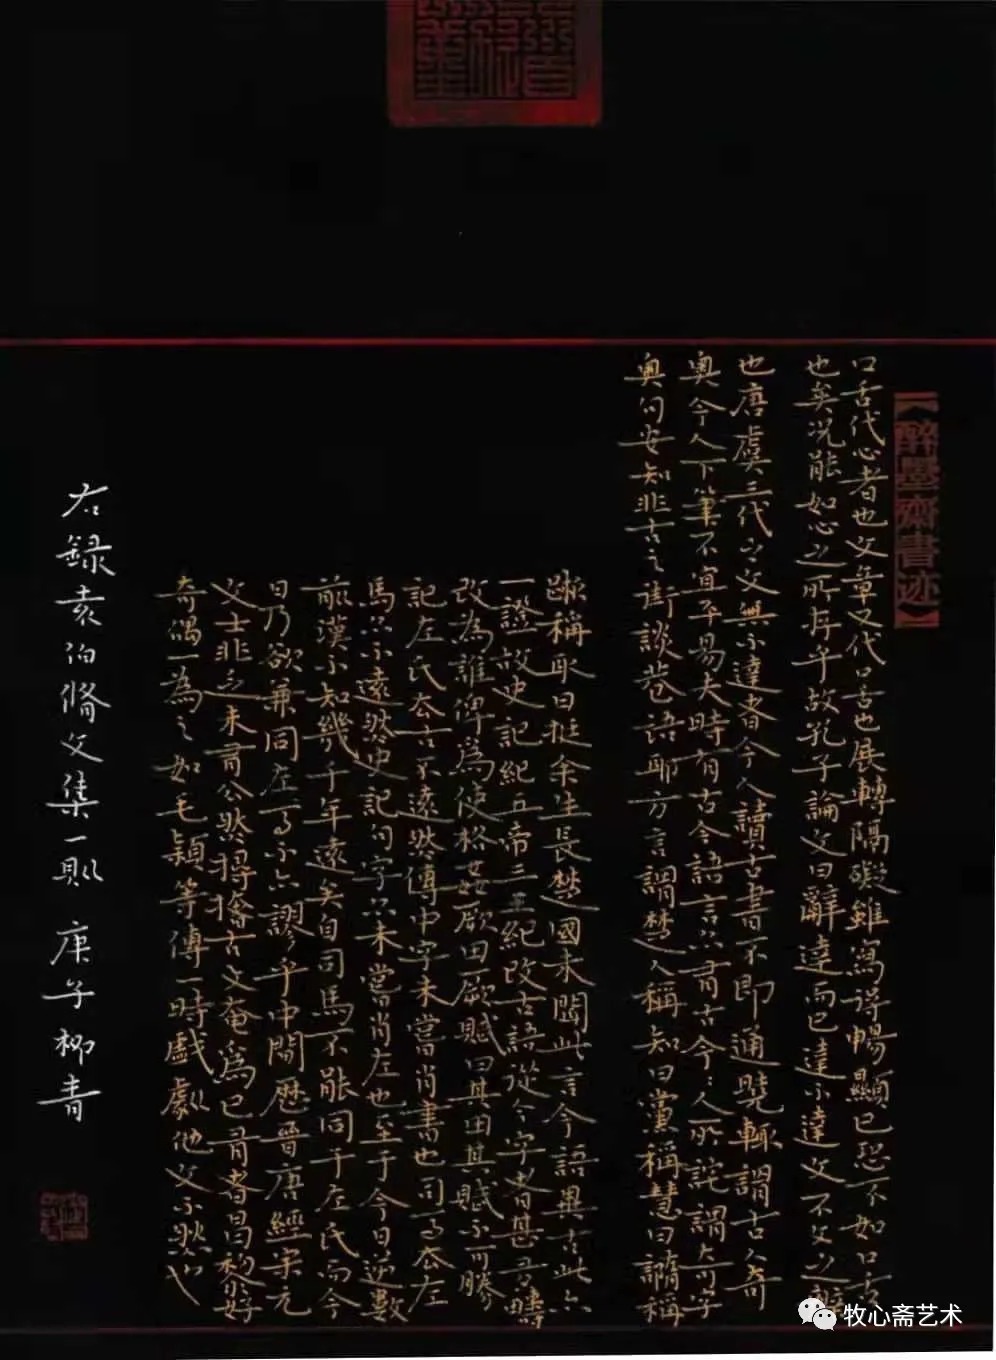 【醉墨齋書迹】
口舌代心者也文章又代口舌也展轉隔礙雖寫得暢顯已恐不如口舌
也矣况能如心之所存乎故孔子論文曰辭達而已達不達文不文之辯
也唐虞三代之文無不達者今人讀古書不即通曉輒謂古人奇
奥今人下筆不宜平易夫時有古今語言亦有古今今人所詫謂奇字
奥句安知非古之街談巷語耶方言謂楚人稱知曰黨稱慧曰譎稱
蹶稱取曰挻余生長楚國未聞此言今語異古此亦
一證故史記紀五帝三王紀改古語從今字者甚多疇
改為誰俾為使格姦厥田厥賦曰其田其賦不可勝
記左氏去古不遠然傳中字未嘗肖書也司馬去左
馬亦不遠然史記句字亦未嘗肖左也至于今日逆數
前漢不知幾千年遠矣自司馬不能同于左氏而今
日乃欲兼同左馬不亦謬乎中間歷晉唐經宋元
文士非乏未有公然撏撦古文奄為已有者昌黎好
奇偶一為之如毛穎等傳一時戲劇他文不然也
右録袁伯脩文集一則 庚子柳青
牧心斋艺术